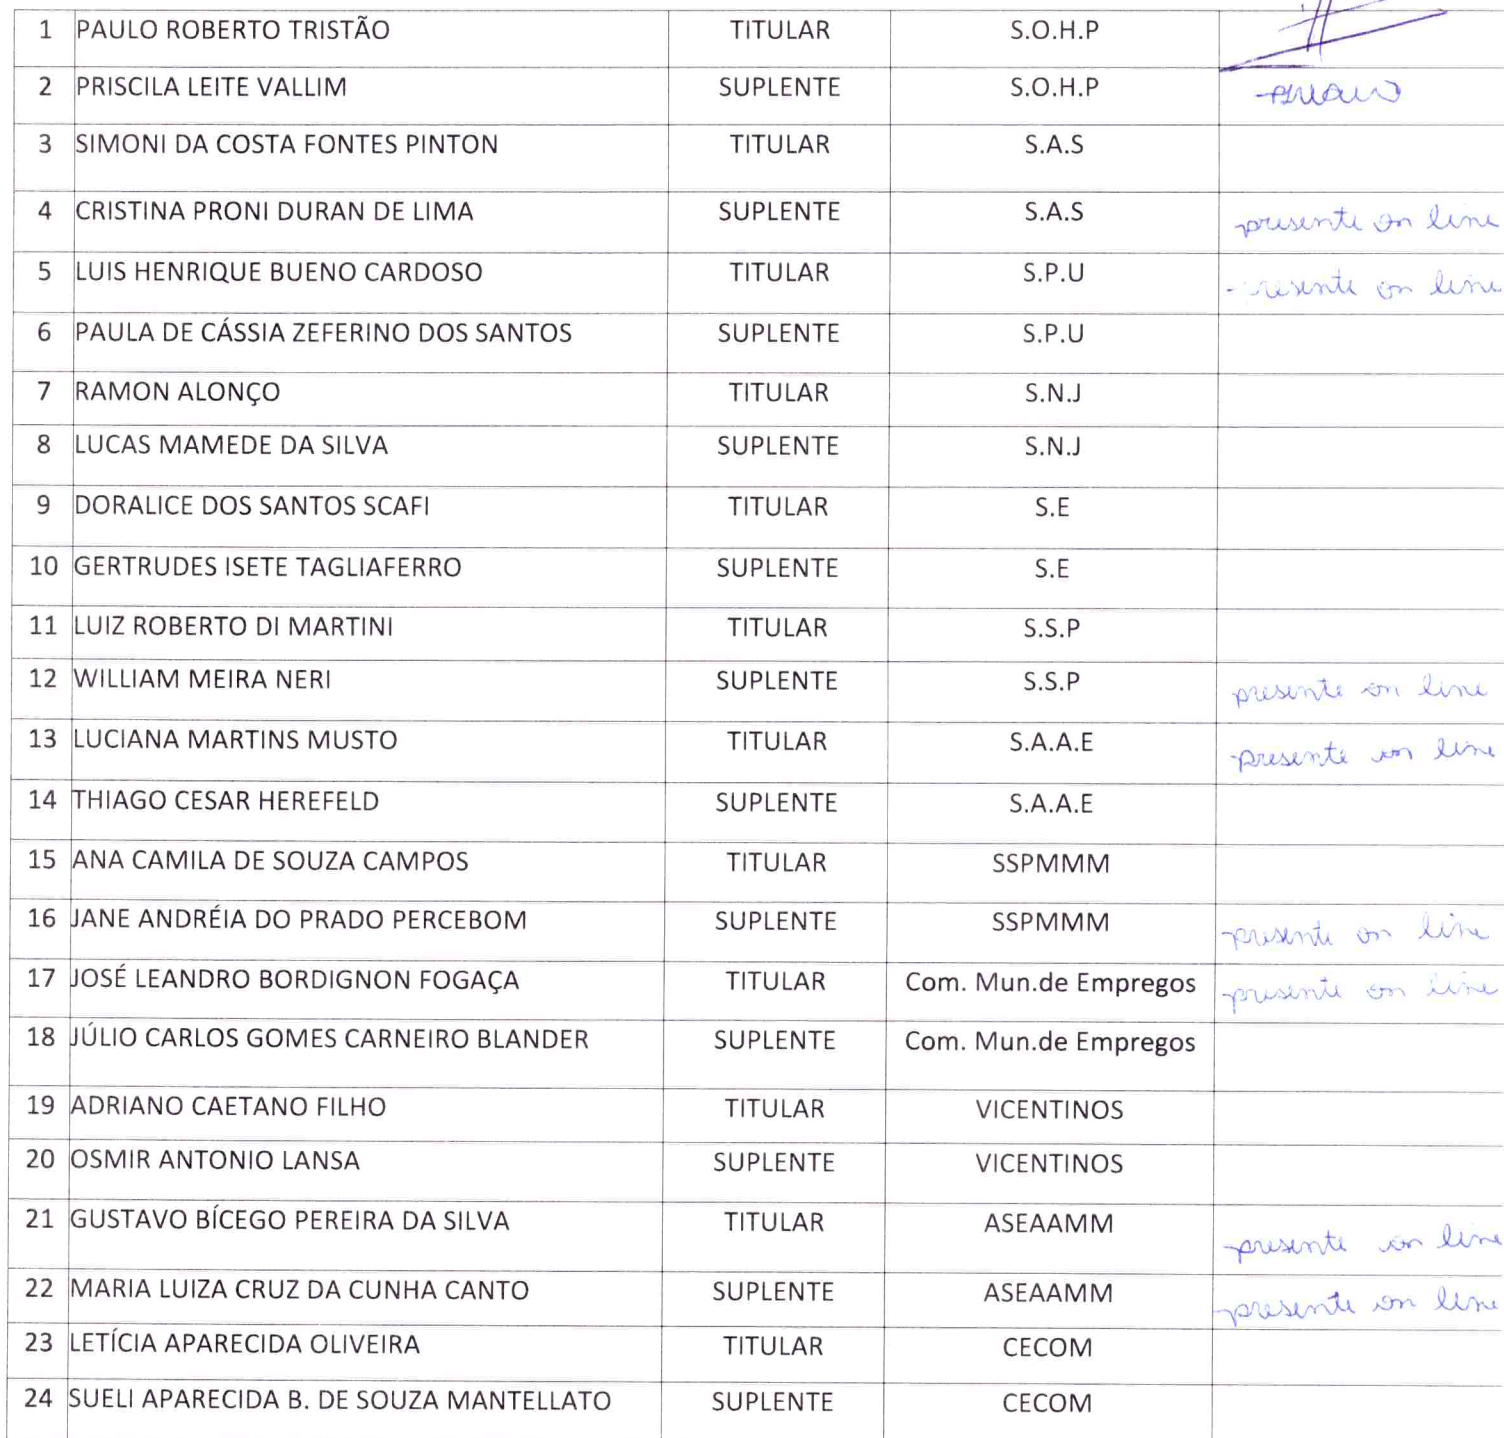 1 PAULO ROBERTO TRISTÃO TITULAR S.O.H.P
2 PRISCILA LEITE VALLIM SUPLENTE S.O.H.P
3 SIMONI DA COSTA FONTES PINTON TITULAR S.A.S
4 CRISTINA PRONI DURAN DE LIMA SUPLENTE S.A.S presente on line
5 LUIS HENRIQUE BUENO CARDOSO TITULAR S.P.U presente on line
6 PAULA DE CÁSSIA ZEFERINO DOS SANTOS SUPLENTE S.P.U
7 RAMON ALONÇO TITULAR S.N.J
8 LUCAS MAMEDE DA SILVA SUPLENTE S.N.J
9 DORALICE DOS SANTOS SCAFI TITULAR S.E
10 GERTRUDES ISETE TAGLIAFERRO SUPLENTE S.E
11 LUIZ ROBERTO DI MARTINI TITULAR S.S.P
12 WILLIAM MEIRA NERI SUPLENTE S.S.P presente on line
13 LUCIANA MARTINS MUSTO TITULAR S.A.A.E presente on line
14 THIAGO CESAR HEREFELD SUPLENTE S.A.A.E
15 ANA CAMILA DE SOUZA CAMPOS TITULAR SSPMMM
16 JANE ANDRÉIA DO PRADO PERCEBOM SUPLENTE SSPMMM presente on line
17 JOSÉ LEANDRO BORDIGNON FOGAÇA TITULAR Com. Mun.de Empregos presente on line
18 JÚLIO CARLOS GOMES CARNEIRO BLANDER SUPLENTE Com. Mun.de Empregos
19 ADRIANO CAETANO FILHO TITULAR VICENTINOS
20 OSMIR ANTONIO LANSA SUPLENTE VICENTINOS
21 GUSTAVO BÍCEGO PEREIRA DA SILVA TITULAR ASEAAMM presente on line
22 MARIA LUIZA CRUZ DA CUNHA CANTO SUPLENTE ASEAAMM presente on line
23 LETÍCIA APARECIDA OLIVEIRA TITULAR CECOM
24 SUELI APARECIDA B. DE SOUZA MANTELLATO SUPLENTE CECOM